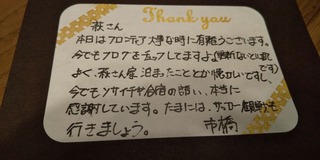 Thank you
萩さん
本日はフロンティア大事な時に有難うございます。
今でもブログをチェックしてますよ(更新ないとは思いですが)
よく、萩さん家泊まったこととか懐かしいですし、
今でもソサイチや合宿の誘い、本当に
感謝しています。たまには、サッカー観戦でも
行きましょう。 市橋